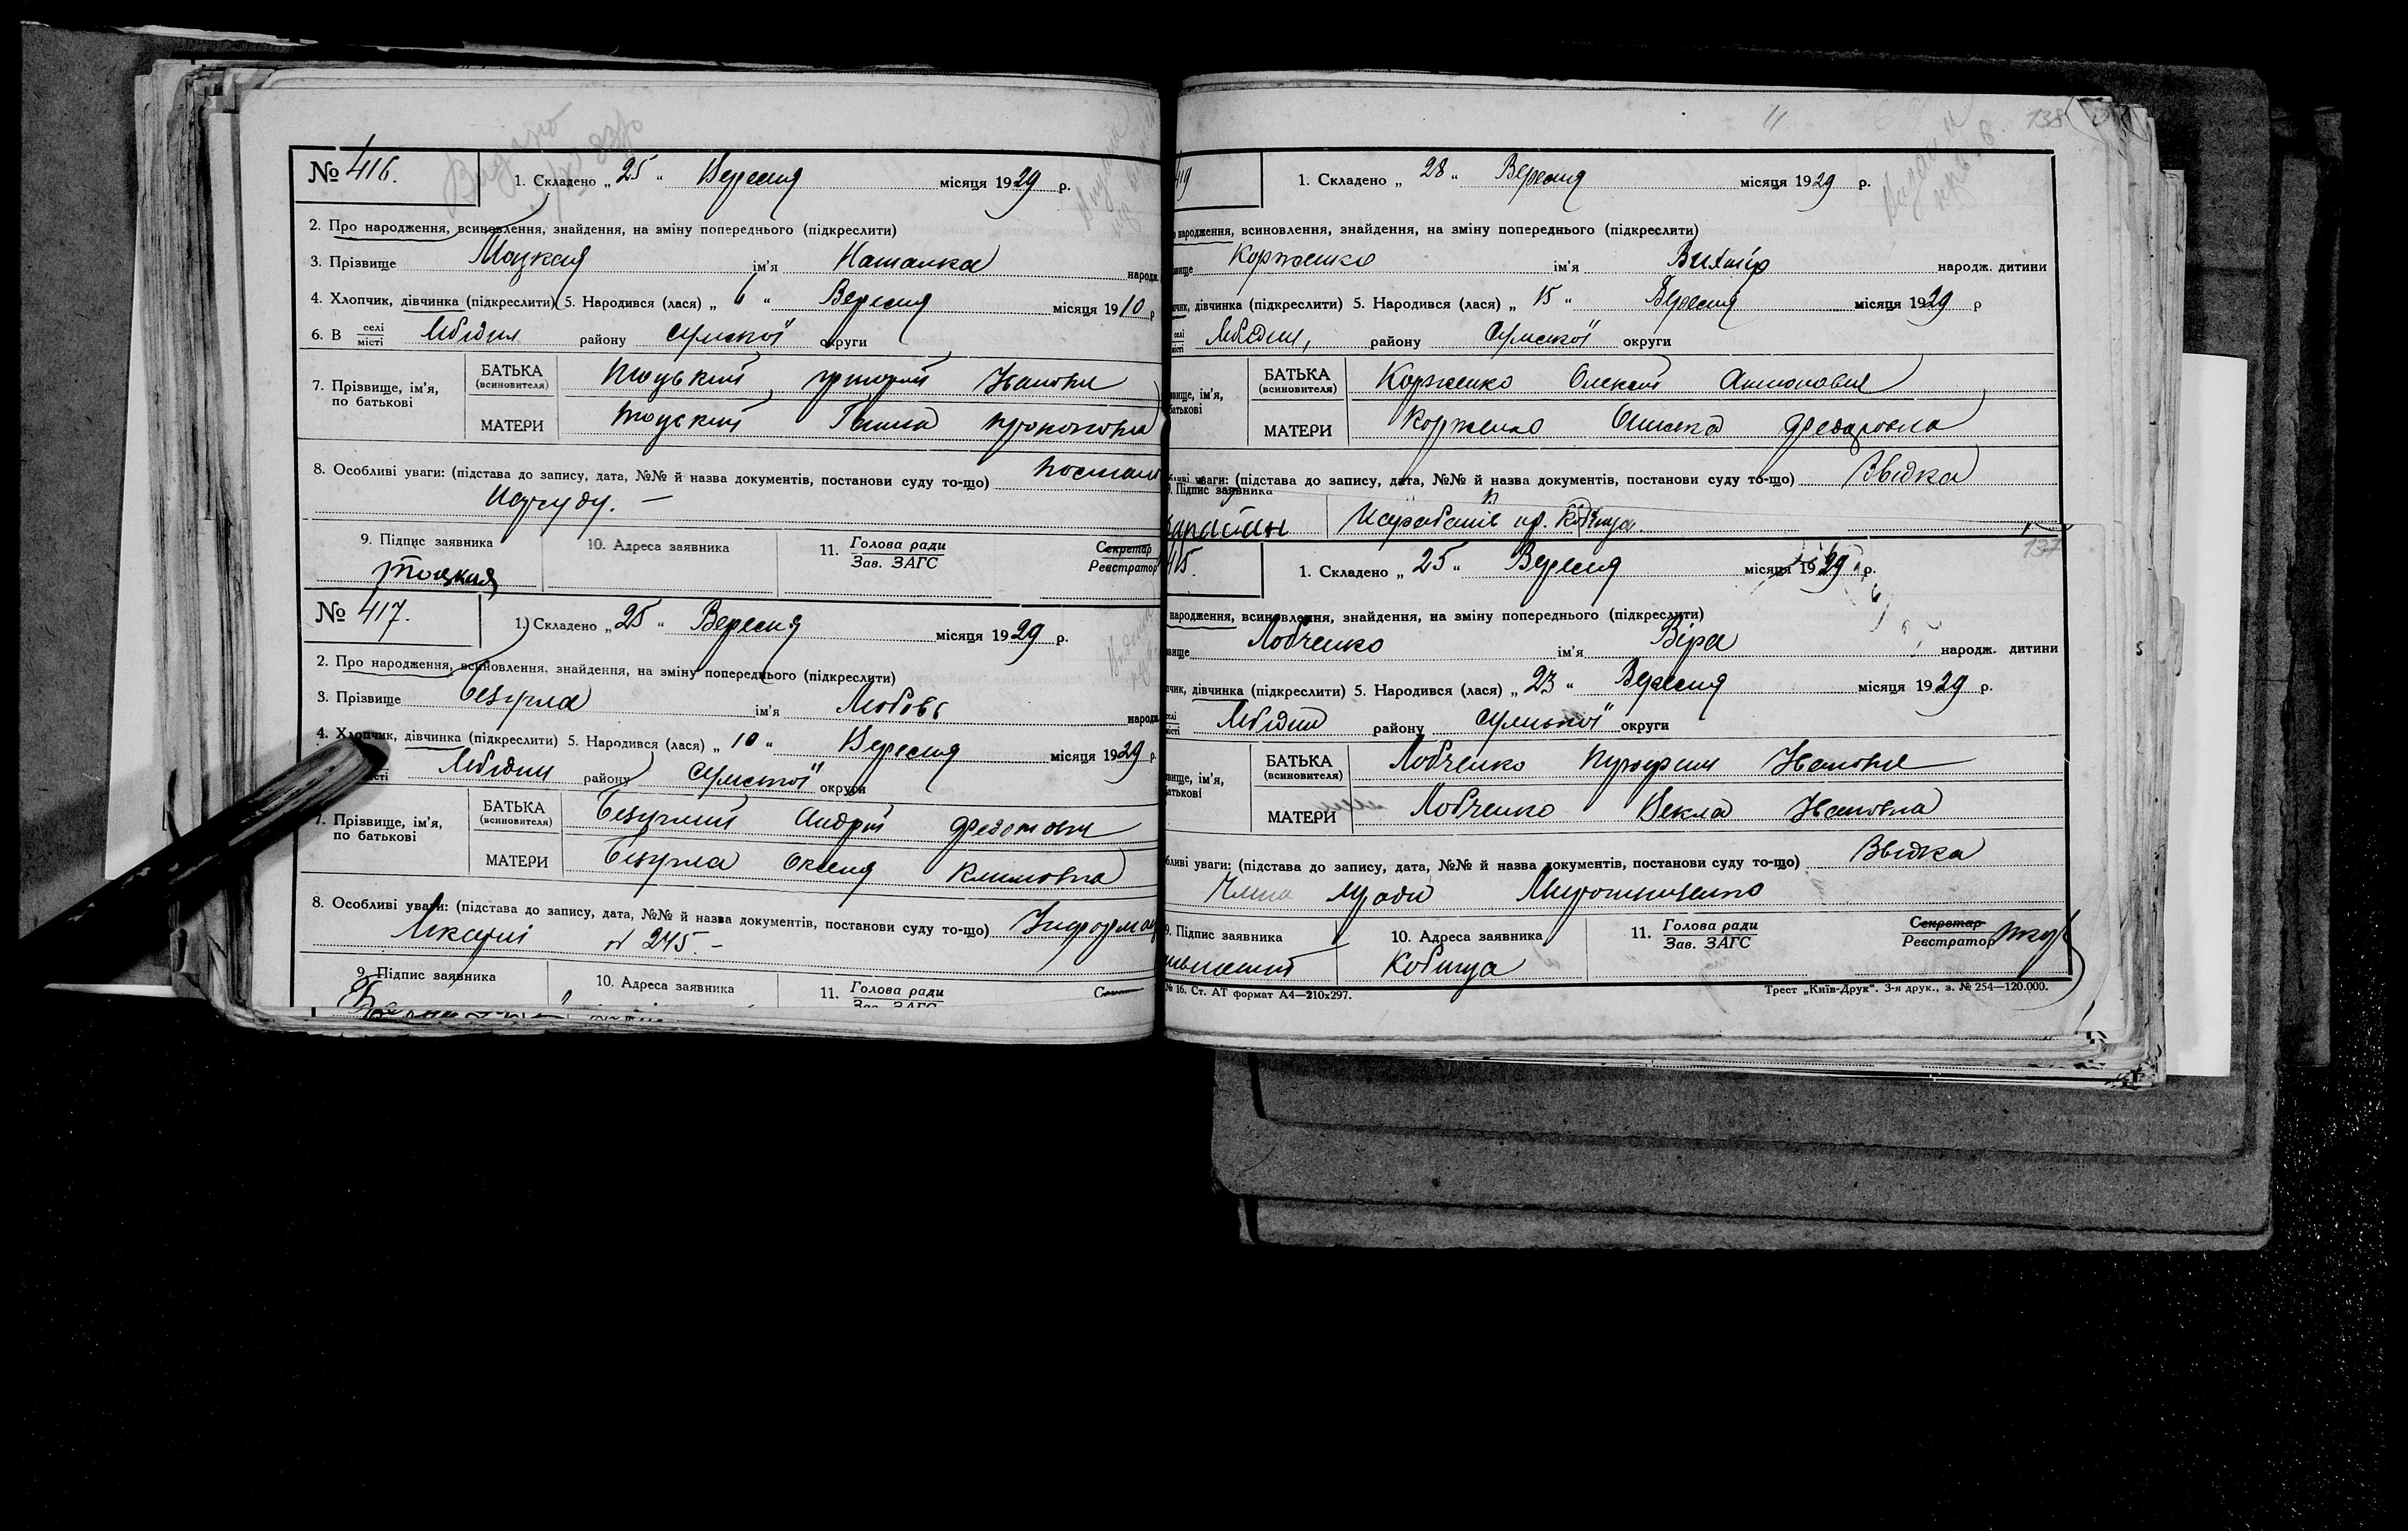 № 416.
1. Складено „ 25 “ Вересня місяця 1929 р.
2. Про народження, всиновлення, знайдення, на зміну попереднього (підкреслити)
3. Прізвище ім'я Наталка народж.
4. Хлопчик, дівчинка (підкреслити) 5. Народився (лася) „ 6 “ Вересня місяця 1910 р
6. В селі місті Лебідин району Сумської округи
7. Прізвище, ім'я, по батькові
БАТЬКА (всиновителя) Тоцький Григорій Іванович
МАТЕРИ Тоцький Ганна Прокоповна
8. Особливі уваги: (підстава до запису, дата, №№ й назва документів, постанови суду то-що) Постан
Нарсуду. —
9. Підпис заявника
10. Адреса заявника
11. Голова ради
Зав. ЗАГС
Секретар
Реєстратор
Тоцкая
№ 417.
1. Складено „ 25 “ Вересня місяця 1929 р.
2. Про народження, всиновлення, знайдення, на зміну попереднього (підкреслити)
3. Прізвище ім'я Любовь народж
4. Хлопчик, дівчинка (підкреслити) 5. Народився (лася) „ 10 “ Вересня місяця 1929 р.
місті Лебідин району Сумської округи
7. Прізвище, ім'я, по батькові
БАТЬКА (всиновителя) Андрій Федотович
МАТЕРИ Оксеня Климовна
8. Особливі уваги: (підстава до запису, дата, №№ й назва документів, постанови суду то-що) Інформац
Лікарні № 245. –
9. Підпис заявника
10. Адреса заявника
11. Голова ради
Зав. ЗАГС
138
419
1. Складено „ 28 “ Вересня місяця 1929 р.
народження, всиновлення, знайдення, на зміну попереднього (підкреслити)
Корженко ім'я народж. дитини
дівчинка (підкреслити) 5. Народився (лася) „ 15 “ Вересня місяця 1929 р
селі місті Лебедин, району Сумської округи
БАТЬКА (всиновителя) Корженко Олексій Антонович
МАТЕРИ Корженко Федоровна
уваги: (підстава до запису, дата, №№ й назва документів, постанови суду то-що) Звідка
Підпис заявника
137
415.
1. Складено „ 25 “ Вересня місяця 1929 р.
народження, всиновлення, знайдення, на зміну попереднього (підкреслити)
Лобченко ім'я Віра народж. дитини
дівчинка (підкреслити) 5. Народився (лася) „ 23 “ Вересня місяця 1929 р.
Лебідин району Сумської округи
БАТЬКА (всиновителя) Лобченко Іванович
МАТЕРИ Лобченко Векла Івановна
уваги: (підстава до запису, дата, №№ й назва документів, постанови суду то-що) Звідка
Члена М/ради Мирошниченко
9. Підпис заявника
10. Адреса заявника
11. Голова ради
Зав. ЗАГС
Секретар
Реєстратор
Кобижча
№ 16. Ст. АТ формат А4—210х297.
Трест „Київ-Друк“. 3-я друк., з. № 254—120.000.